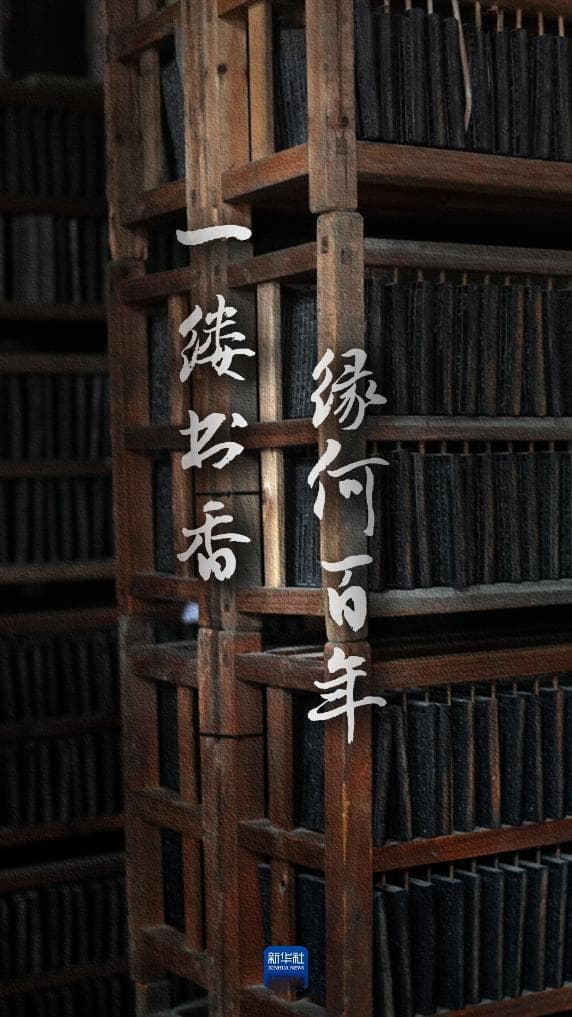 一缕书香
缘何百年
新华社
XINHUA NEWS